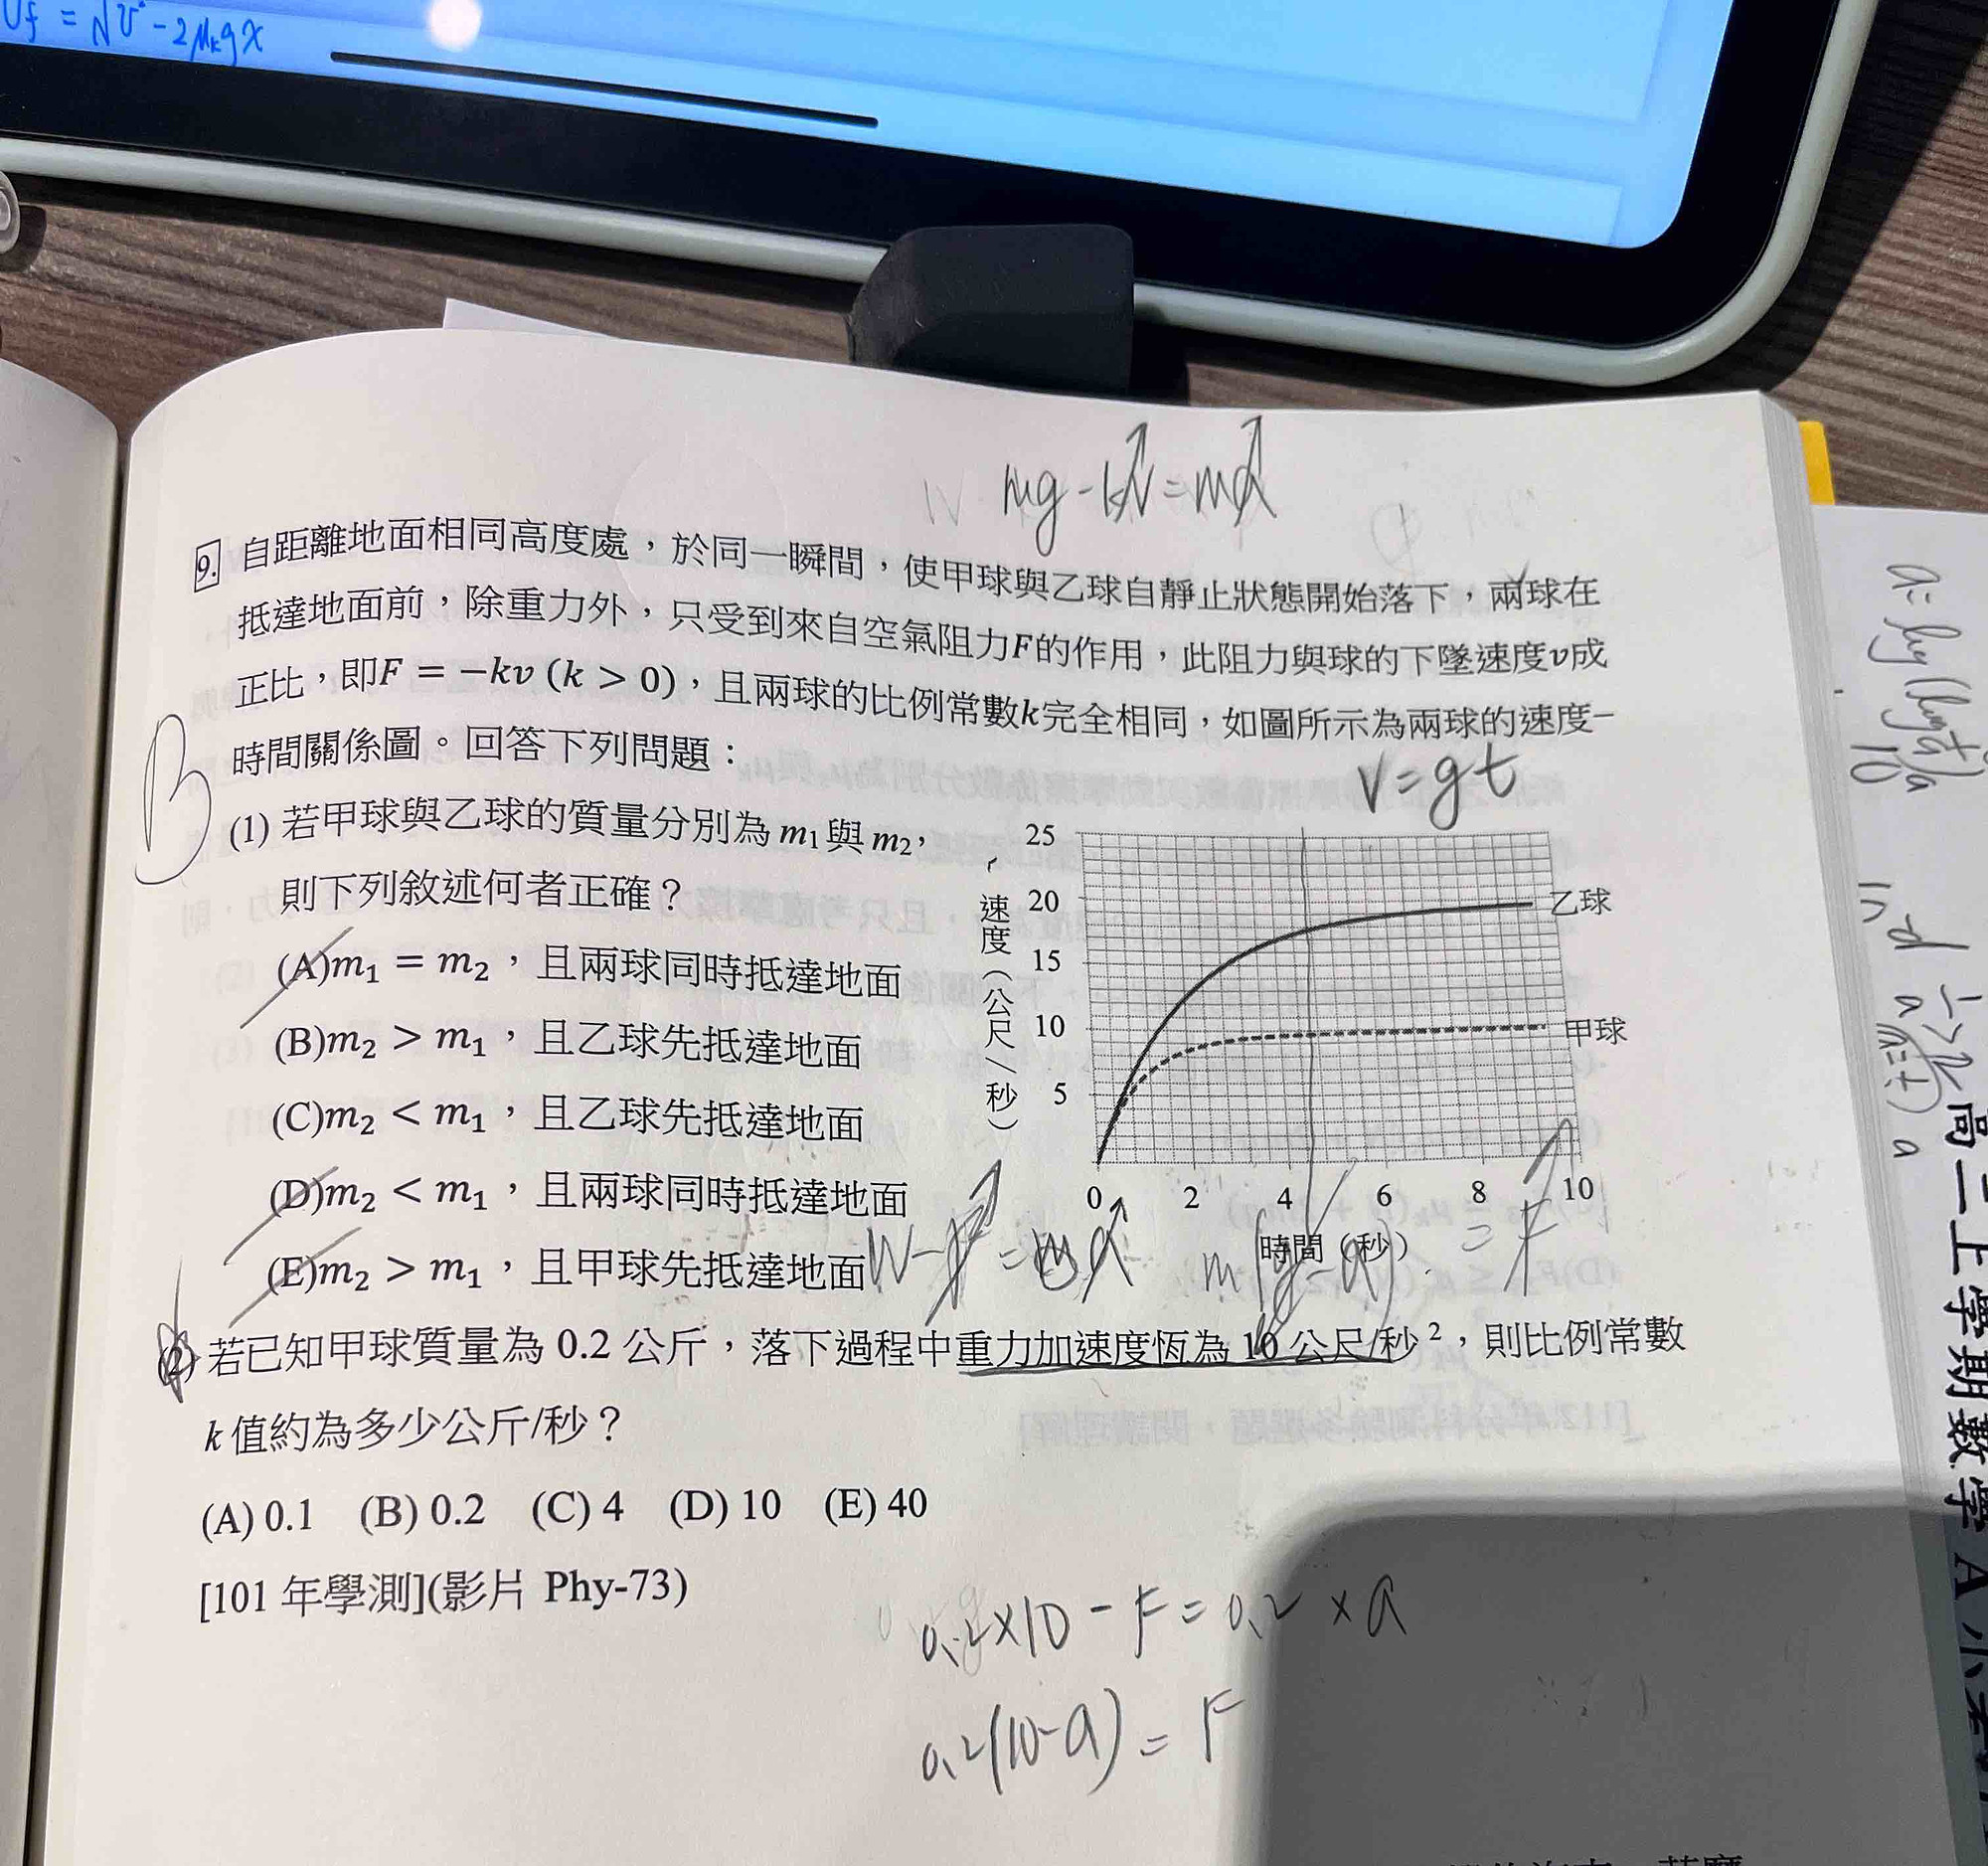 mg - kv = ma
9. 自距離地面相同高度處，於同一瞬間，使甲球與乙球自靜止狀態開始落下，兩球在
抵達地面前，除重力外，只受到來自空氣阻力F的作用，此阻力與球的下墜速度v成
正比，即F = −kv (k > 0)，且兩球的比例常數k完全相同，如圖所示為兩球的速度−
時間關係圖。回答下列問題：
B
(1) 若甲球與乙球的質量分別為 m₁與 m₂，
則下列敘述何者正確？
(A)m₁ = m₂，且兩球同時抵達地面
(B)m₂ > m₁，且乙球先抵達地面
(C)m₂ < m₁，且乙球先抵達地面
(D)m₂ < m₁，且兩球同時抵達地面
(E)m₂ > m₁，且甲球先抵達地面
V = gt
速度（公尺/秒）
25
20
15
10
5
乙球
甲球
0 2 4 6 8 10
時間（秒）
W - F = ma
m(g - a) = F
(2) 若已知甲球質量為 0.2 公斤，落下過程中重力加速度恆為 10 公尺/秒²，則比例常數
k 值約為多少公斤/秒？
(A) 0.1 (B) 0.2 (C) 4 (D) 10 (E) 40
[101 年學測](影片 Phy-73)
0.2×10 - F = 0.2 × a
0.2(10-a) = F
高二上學期數學 A